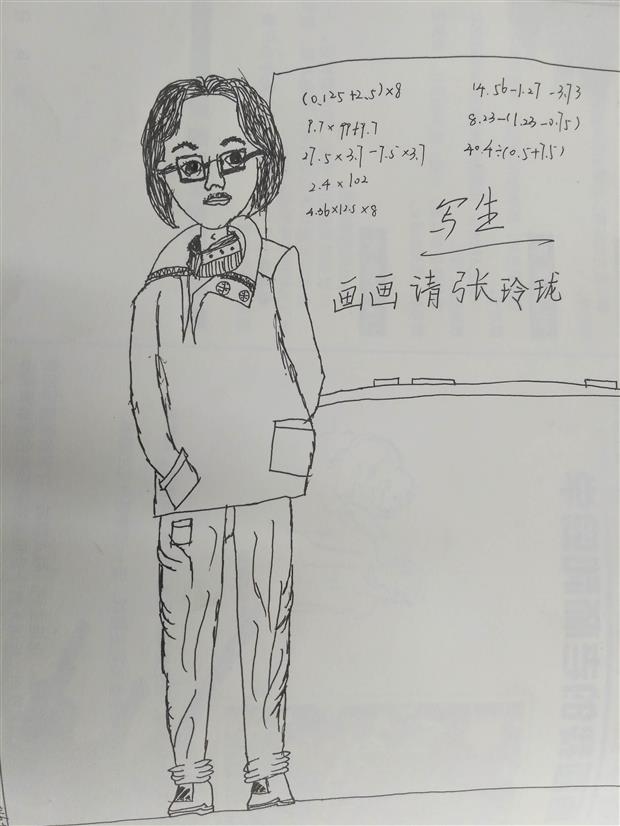 (0.125+2.5)×8
9.7×99+9.7
27.5×3.7-7.5×3.7
2.4×102
4.36×12.5×8
14.56-1.27-3.73
8.23-(1.23-0.75)
40.4÷(0.5+7.5)
写生
画画请张玲珑